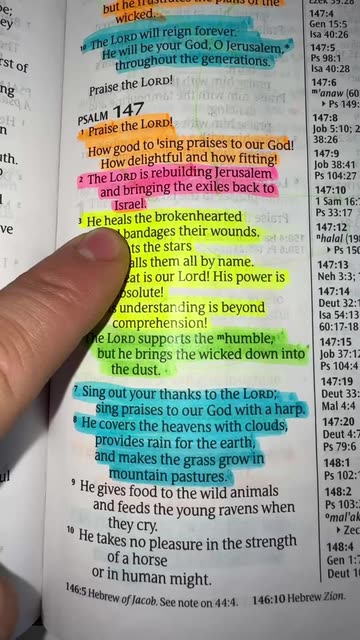 but he frustrates the plans of the
wicked.
10 The LORD will reign forever.
He will be your God, O Jerusalem,*
throughout the generations.
Praise the LORD!
PSALM 147
1 Praise the LORD!
How good to lsing praises to our God!
How delightful and how fitting!
2 The LORD is rebuilding Jerusalem
and bringing the exiles back to
Israel.
3 He heals the brokenhearted
bandages their wounds.
the stars
them all by name.
is our Lord! His power is
understanding is beyond
comprehension!
The LORD supports the mhumble,
but he brings the wicked down into
the dust.
7 Sing out your thanks to the LORD;
sing praises to our God with a harp.
8 He covers the heavens with clouds,
provides rain for the earth,
and makes the grass grow in
mountain pastures.
9 He gives food to the wild animals
and feeds the young ravens when
they cry.
10 He takes no pleasure in the strength
of a horse
or in human might.
146:5 Hebrew of Jacob. See note on 44:4. 146:10 Hebrew Zion.
147:4
Gen 15:5
Isa 40:26
147:5
Ps 98:1
Isa 40:28
147:6
m'anaw (60
Ps 149:
147:8
Job 5:10;
38:26
147:9
Job 38:41
Ps 104:27
147:10
1 Sam 16:
Ps 33:17
147:12
nhalal (19
Ps 150
147:13
Neh 3:3;
147:14
Deut 32:1
Isa 54:13
60:17-18
147:15
Job 37:12
Ps 104:4
147:19
Deut 33:
Mal 4:4
147:20
Deut 4:7
Ps 79:6
148:1
Ps 102:1
148:2
Ps 103:
omal'ak
Zec
148:4
Gen 1:7
Deut 10